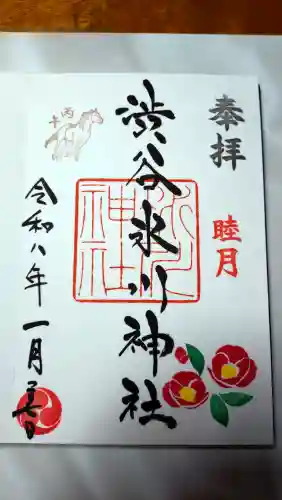 奉拝
睦月
渋谷氷川神社
氷川神社
丙午
令和八年一月
日